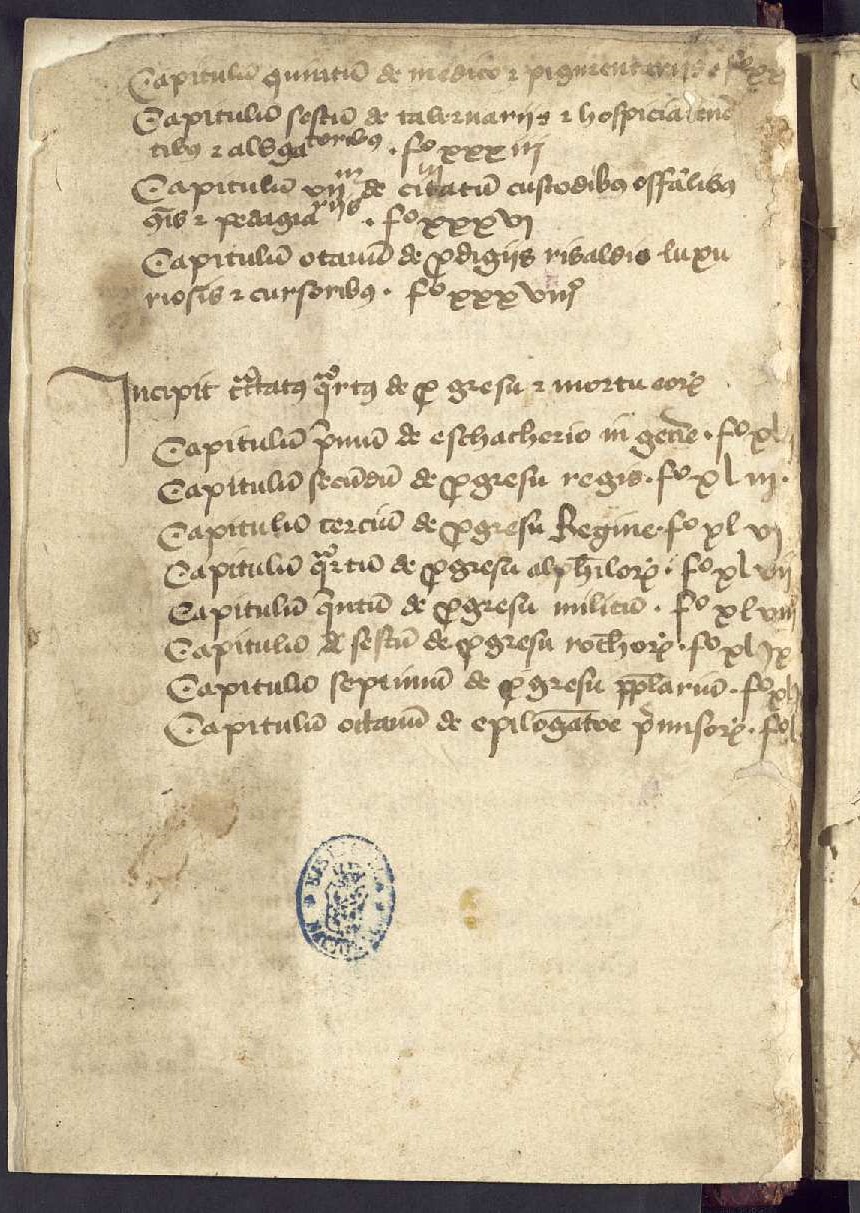 Capitulū quintū de medico ⁊ pigmentariis. fo xx
Capitulū sestū de tabernariis ⁊ hospicia tenē
tibus ⁊ albgatoribus. fo xxxiij
Capitulū vijm de ciuitatū custodibus offālibus
⁊ pedagiariis. fo xxxvj
Capitulū otauū de ꝓdigiis ribaldis luxu
riosis ⁊ cursoribus. fo xxxviij
Incipit tr̄tatus quartus de ꝓgresu ⁊ mortu eorꝝ
Capitulū p̄mū de eschacherio in gen̄e. fo xl
Capitulū secūdū de ꝓgresu regis. fo xliij.
Capitulū terciū de ꝓgresu Regine. fo xlvj
Capitulū quartū de ꝓgresu alphilorꝝ. fo xlvij
Capitulū qintū de ꝓgresu militū. fo xlviij
Capitulū sestū de ꝓgresu rochorꝝ. fo xlix
Capitulū septimū de ꝓgresu pplariū. fo
Capitulū octauū de epilogatōe p̄missorꝝ. fo